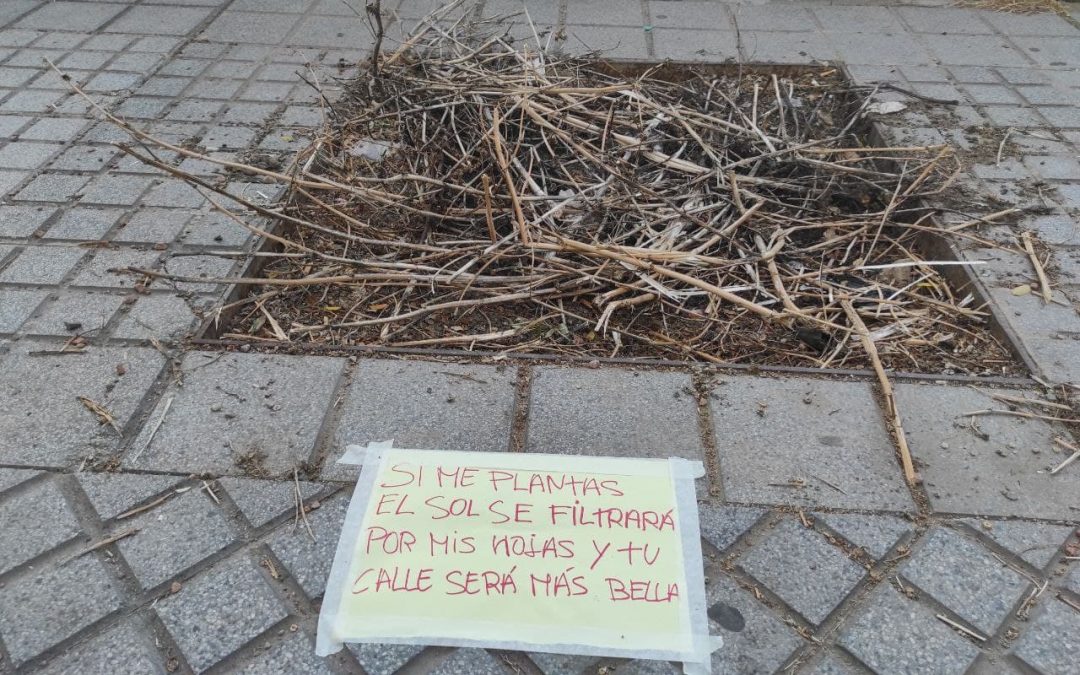 SI ME PLANTAS
EL SOL SE FILTRARÁ
POR MIS HOJAS Y TU
CALLE SERÁ MÁS BELLA